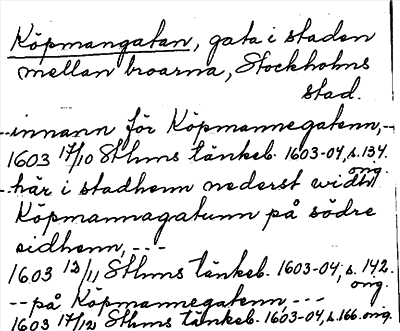 Köpmangatan, gata i staden
mellan broarna, Stockholms
stad.
--innann för Köpmannegatenn,--
1603 17/10 Sthms tänkeb. 1603-04, s. 134.
orig.
--här i stadhenn nederst widh
Köpmannagatunn på södre
sidhenn, ---
1603 12/11 Sthms tänkeb. 1603-04, s. 142.
orig.
--på Köpmannegatenn ---
1603 17/12 Sthms tänkeb. 1603-04, s. 166. orig.